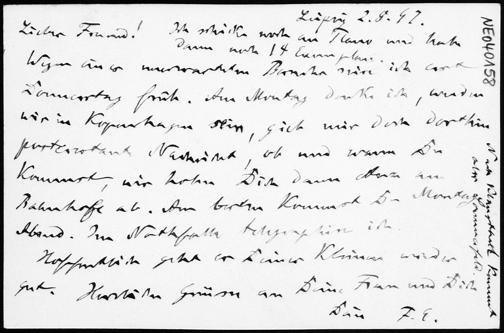 Leipzig 2.8.97.
Lieber Freund! Ich schicke noch an und habe
dann noch 14 Exemplare.
Wegen einer unerwarteten reise ich erst
Donnerstag früh. Am Montag denke ich, werden
wir in Kopenhagen sein, gieb mir doch dorthin
postrestant Nachricht, ob und wann Du
kommst, wir holen Dich dann am
Bahnhofe ab. Am besten kommst Du Montag
Abend. Im Nothfalle telegraphire ich.
Hoffentlich geht es Deiner Kleinen wieder
gut. Herzliche Grüsse an Deine Frau und Dich
Dein F. E.
Nach kommt
NE040158